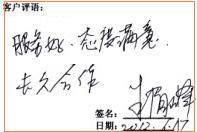 客户评语:
服务好、态度满意
长久合作
签名:
日期: 2012.6.17